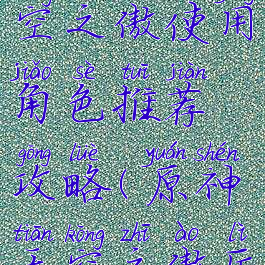 空之傲使用
jiǎo sè tuī jiàn
角色推荐
gōng lüè yuán shén
攻略(原神
tiān kōng zhī ào lì